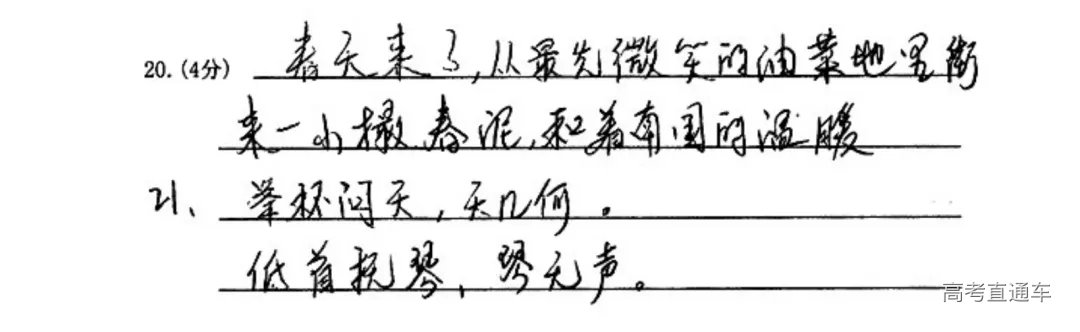 20.(4分) 春天来了,从最先微笑的油菜地里衔
来一小撮春泥,和着南国的温暖
21、举杯问天,天几何。
低首抚琴,琴无声。
高考直通车